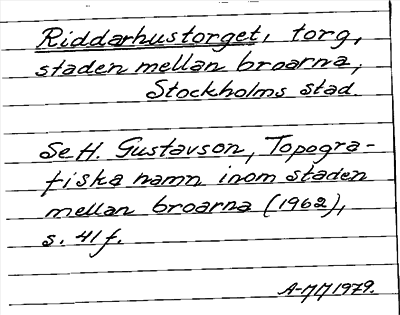 Riddarhustorget, torg,
staden mellan broarna,
Stockholms stad.
Se H. Gustavson, Topogra-
fiska namn inom staden
mellan broarna (1962),
s. 41 f.
1979.